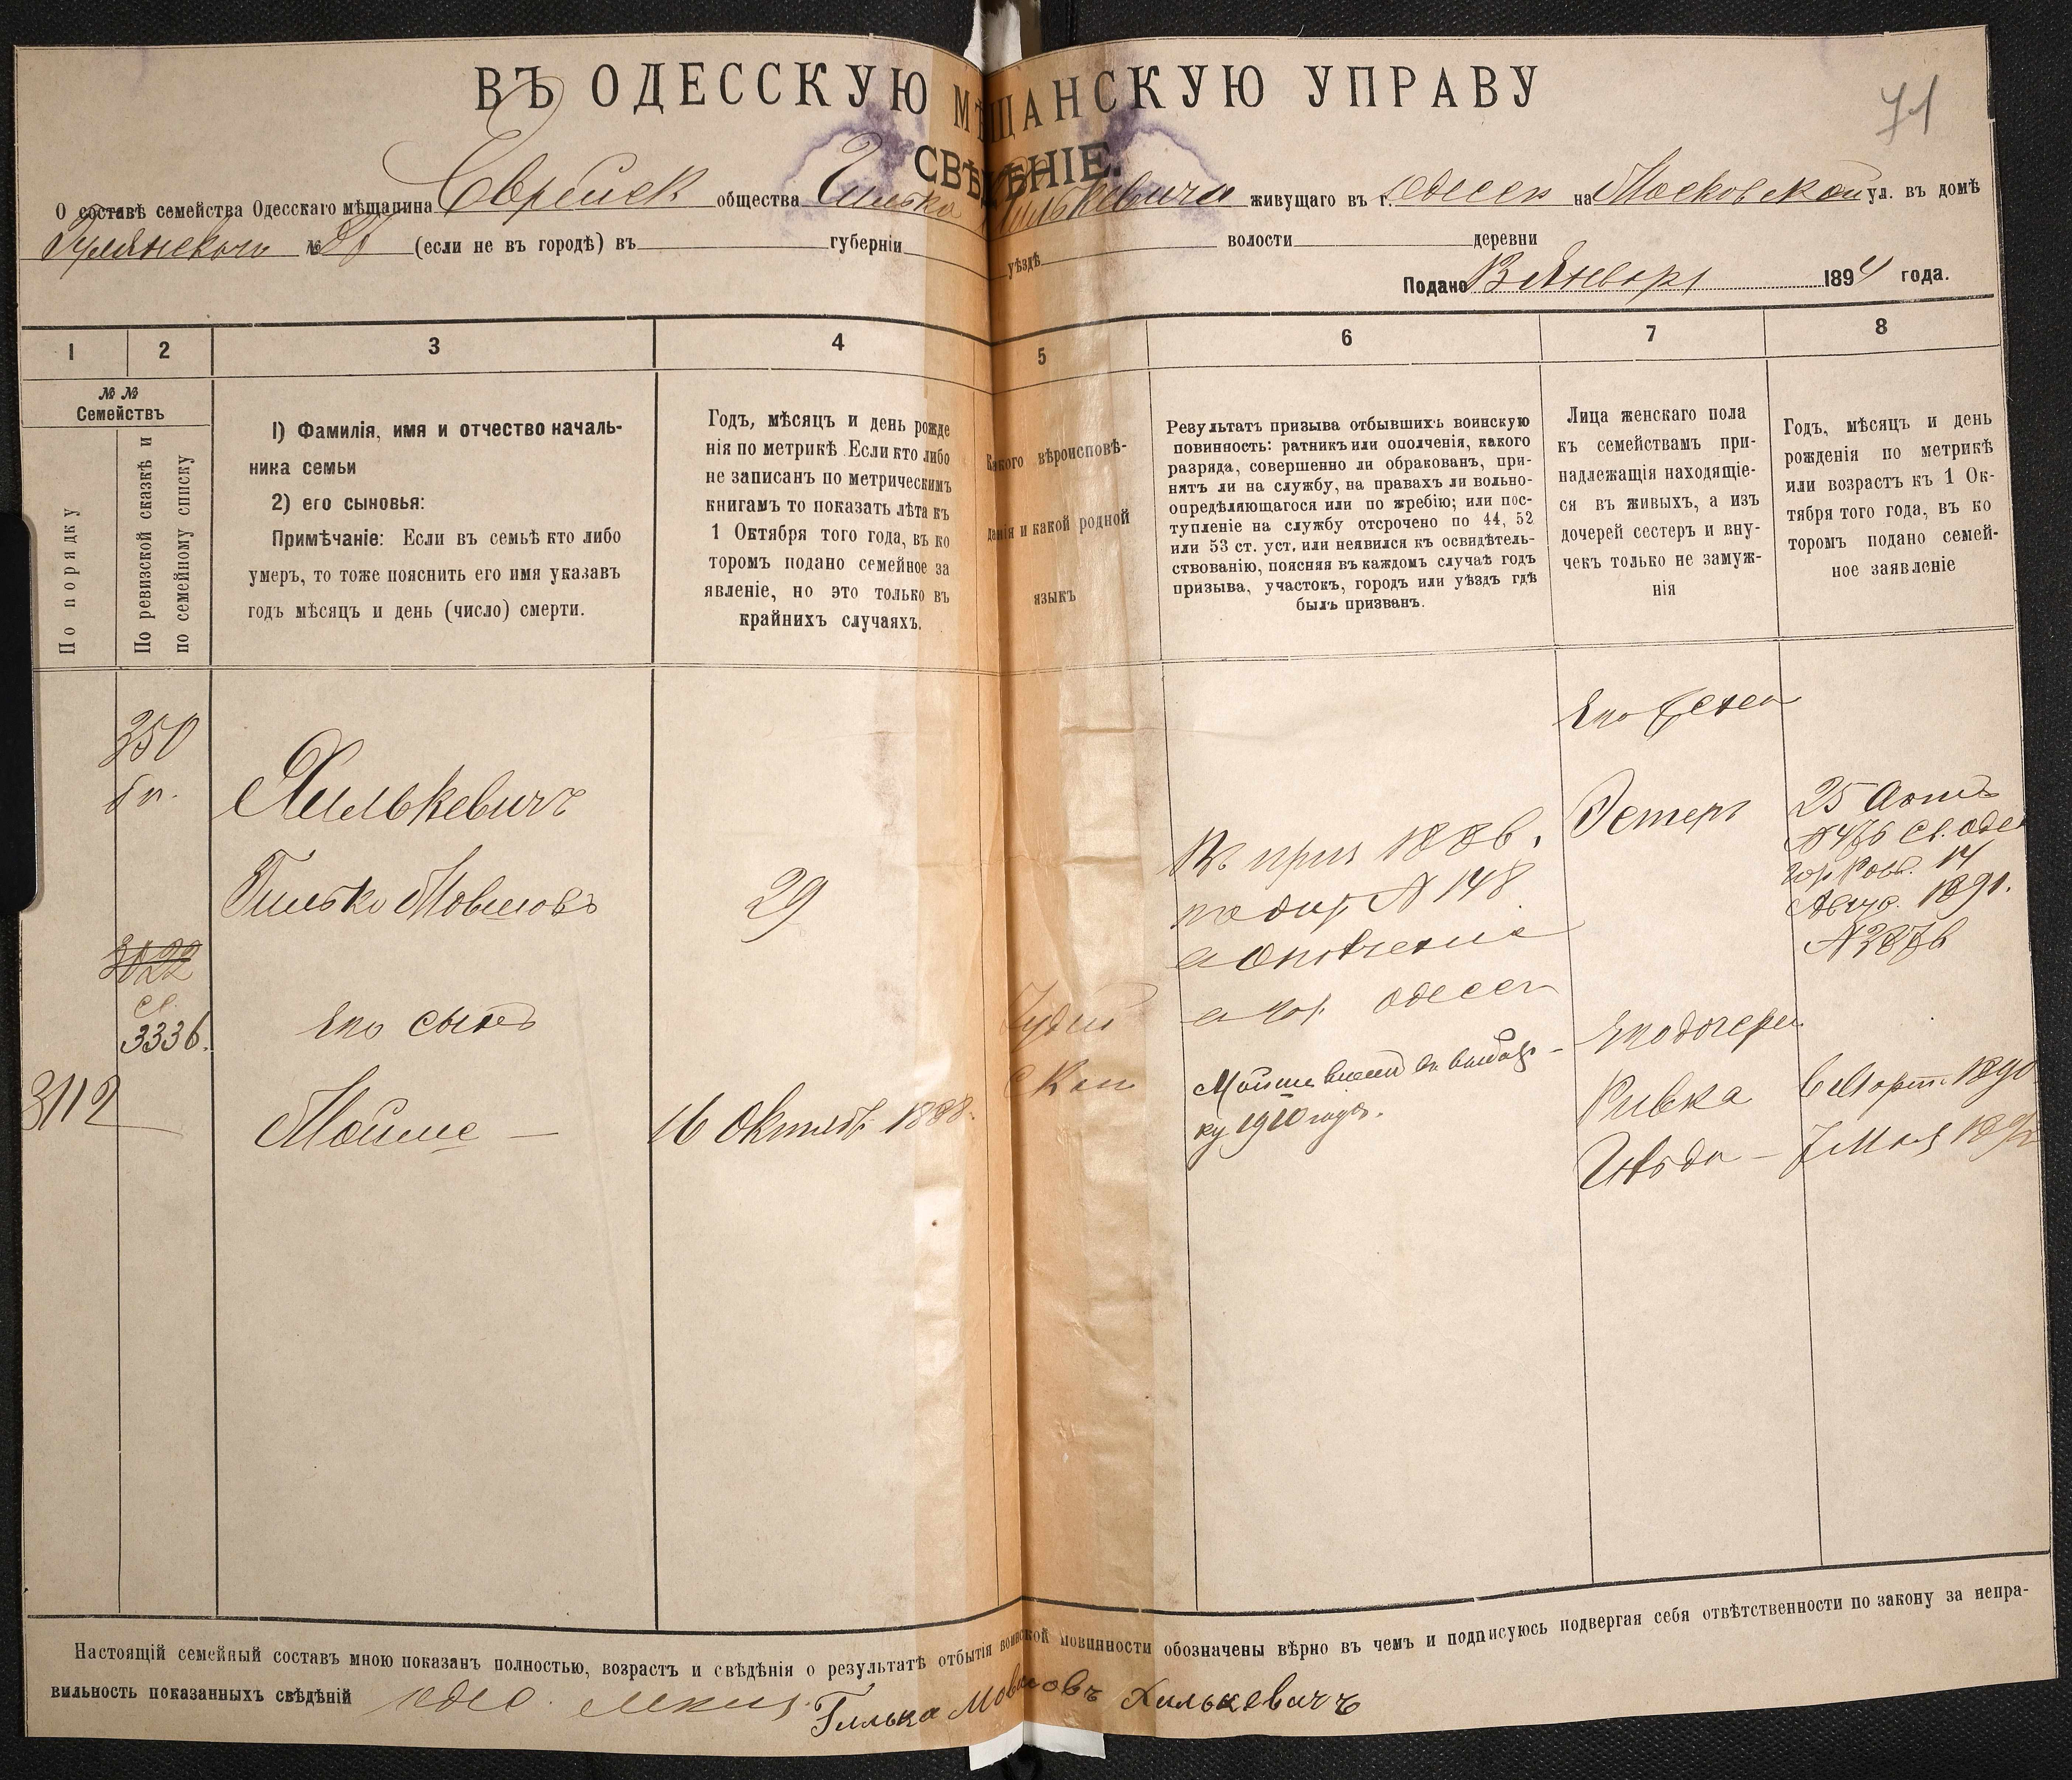 ВЪ ОДЕССКУЮ МѢЩАНСКУЮ УПРАВУ
71
СВѢДѢНІЕ.
О составѣ семейства Одесскаго мѣщанина Еврейск общества Гилька Хилькевича живущаго въ г. Одессѣ на Московской ул. въ домѣ
№ (если не въ городѣ) въ губерніи уѣздѣ волости деревни
Подано Январ 1894 года.
1 2 3 4 5 6 7 8
№№
Семействъ
По порядку
По ревизской сказкѣ и
по семейному списку
1) Фамилія, имя и отчество началь-
ника семьи
2) его сыновья:
Примѣчаніе: Если въ семьѣ кто либо
умеръ, то тоже пояснить его имя указавъ
годъ мѣсяцъ и день (число) смерти.
Годъ, мѣсяцъ и день рожде
нія по метрикѣ Если кто либо
не записанъ по метрическимъ
книгамъ то показать лѣта къ
1 Октября того года, въ ко
торомъ подано семейное за
явленіе, но это только въ
крайнихъ случаяхъ.
Какого вѣроисповѣ-
данія и какой родной
языкъ
Результатъ призыва отбывшихъ воинскую
повинность: ратникъ или ополченія, какого
разряда, совершенно ли обракованъ, при-
нятъ ли на службу, на правахъ ли вольно-
опредѣляющагося или по жребію; или пос-
тупленіе на службу отсрочено по 44, 52
или 53 ст. уст, или неявился къ освидѣтель-
ствованію, поясняя въ каждомъ случаѣ годъ
призыва, участокъ, городъ или уѣздъ гдѣ
былъ призванъ.
Лица женскаго пола
къ семействамъ при-
надлежащія находящіе-
ся въ живыхъ, а изъ
дочерей сестеръ и вну-
чекъ только не замуж-
нія
Годъ, мѣсяцъ и день
рожденія по метрикѣ
или возрастъ къ 1 Ок-
тября того года, въ ко
торомъ подано семей-
ное заявленіе
Его жена
350
Хилькевичъ
Эстеръ
25
Гилько Мовшовъ
29
1886.
№ 148
Одессѣ
1891.
3022
3336.
Его сынъ
Іудей
ск
Его дочери
3112
Мойше —
16 Октяб 1888.
Мойше
1910 года.
Ривка
6 Март. 1890
7 Мая
Настоящій семейный составъ мною показанъ полностью, возрастъ и свѣдѣнія о результатѣ отбытія воинской повинности обозначены вѣрно въ чемъ и подписуюсь подвергая себя отвѣтственности по закону за непра-
вильность показанныхъ свѣдѣній Гилька Мовшовъ Хилькевичъ